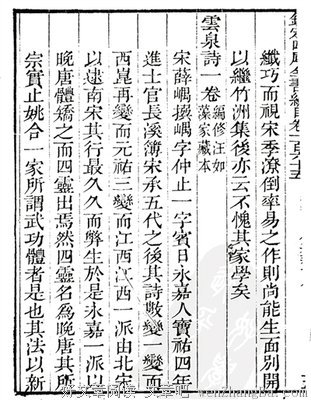 欽定四庫全書總目卷一百六十五
纖巧而視宋季潦倒率易之作則尚能生面別開
以繼竹洲集後亦云不愧其家學矣
雲泉詩一卷
編修汪如
藻家藏本
宋薛嵎撰嵎字仲止一字賓日永嘉人寶祐四年
進士官長溪簿宋承五代之後其詩數變一變而
西崑再變而元祐三變而江西江西一派由北宋
以逮南宋其行最久久而弊生於是永嘉一派以
晚唐體矯之而四靈出焉然四靈名為晚唐其所
宗實止姚合一家所謂武功體者是也其法以新
www.wenzhangba.com